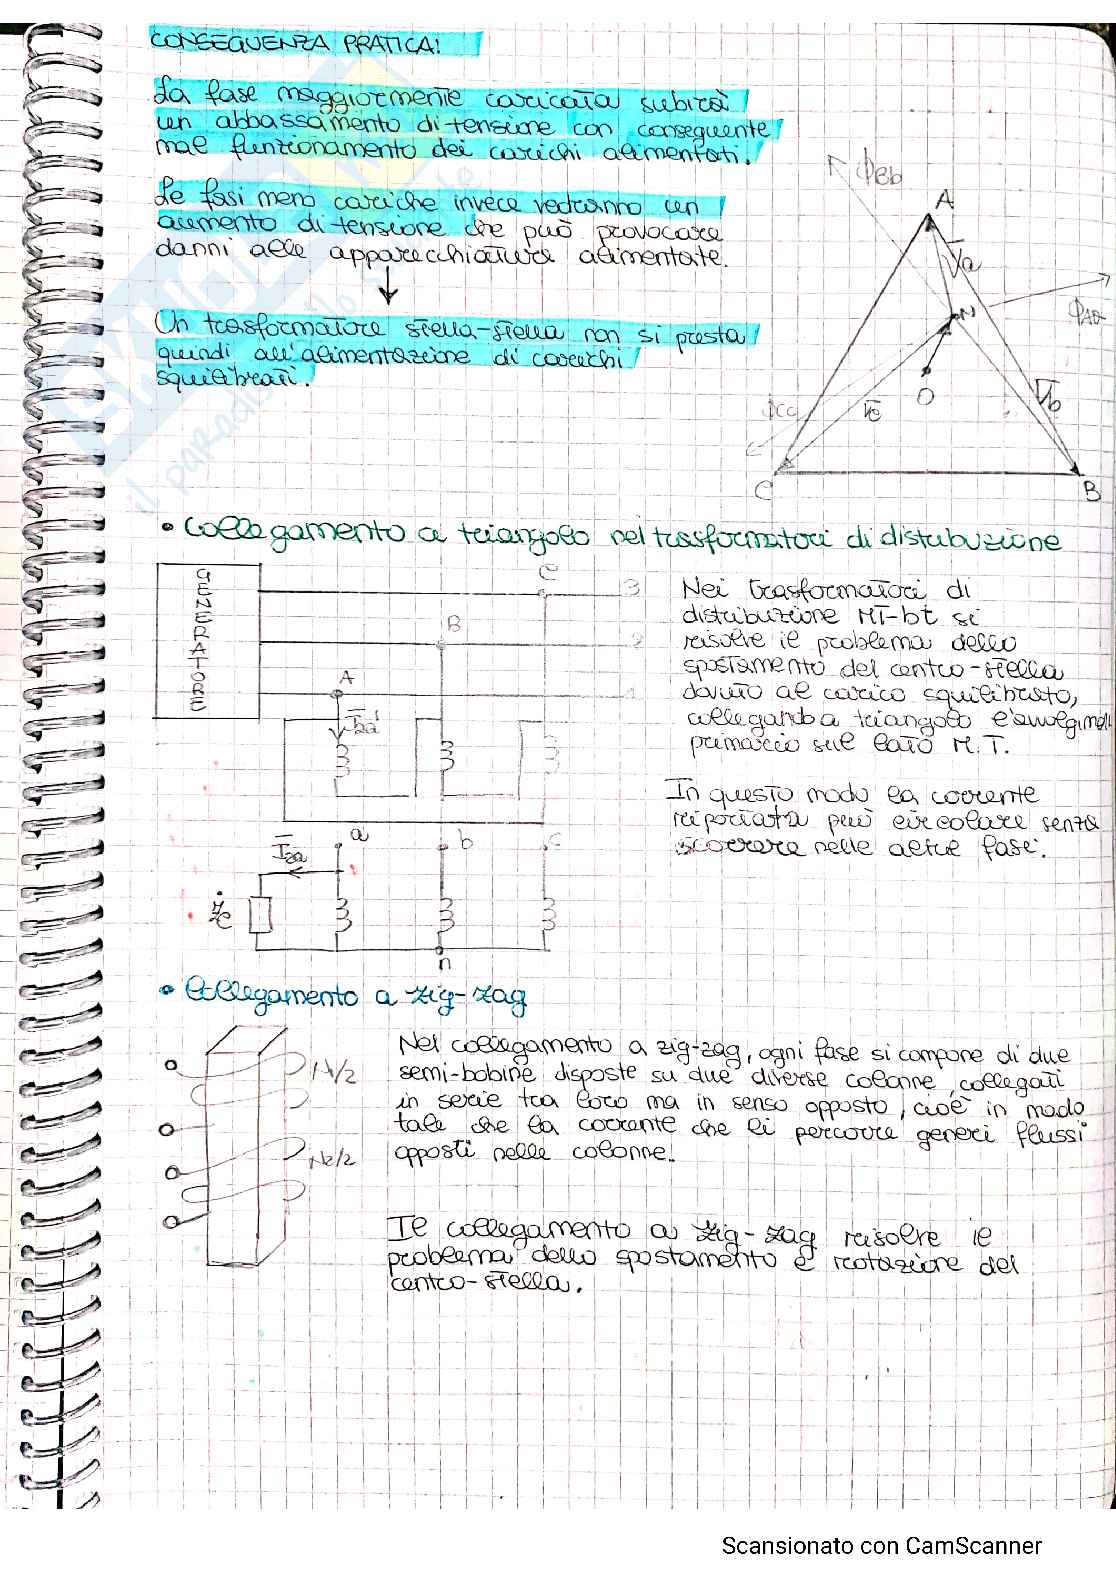 CONSEGUENZA PRATICA:
La fase maggiormente caricata subirà
un abbassamento di tensione con conseguente
mal funzionamento dei carichi alimentati.
Le fasi meno cariche invece vedranno un
aumento di tensione che può provocare
danni alle apparecchiature alimentate.
Un trasformatore stella-stella non si presta
quindi all'alimentazione di carichi
squilibrati.
ΦBb
A
Va
N
ΦAa
O
Vb
Vc
ΦCc
C
B
• Collegamento a triangolo nel trasformatori di distribuzione
GENERATORE
C
3
B
2
A
1
I2a'
Nei trasformatori di
distribuzione MT-bt si
risolve il problema dello
spostamento del centro-stella
dovuto al carico squilibrato,
collegando a triangolo
primario sul lato M.T.
In questo modo la corrente
riportata può circolare senza
scorrere nelle altre fasi.
a
b
c
I2a
Żc
n
• Collegamento a zig-zag
N/2
N2/2
Nel collegamento a zig-zag, ogni fase si compone di due
semi-bobine disposte su due diverse colonne, collegati
in serie tra loro ma in senso opposto, cioè in modo
tale che la corrente che li percorre generi flussi
opposti nelle colonne.
Il collegamento a zig-zag risolve il
problema dello spostamento e rotazione del
centro-stella.
SKUOLA
il paradiso
Scansionato con CamScanner